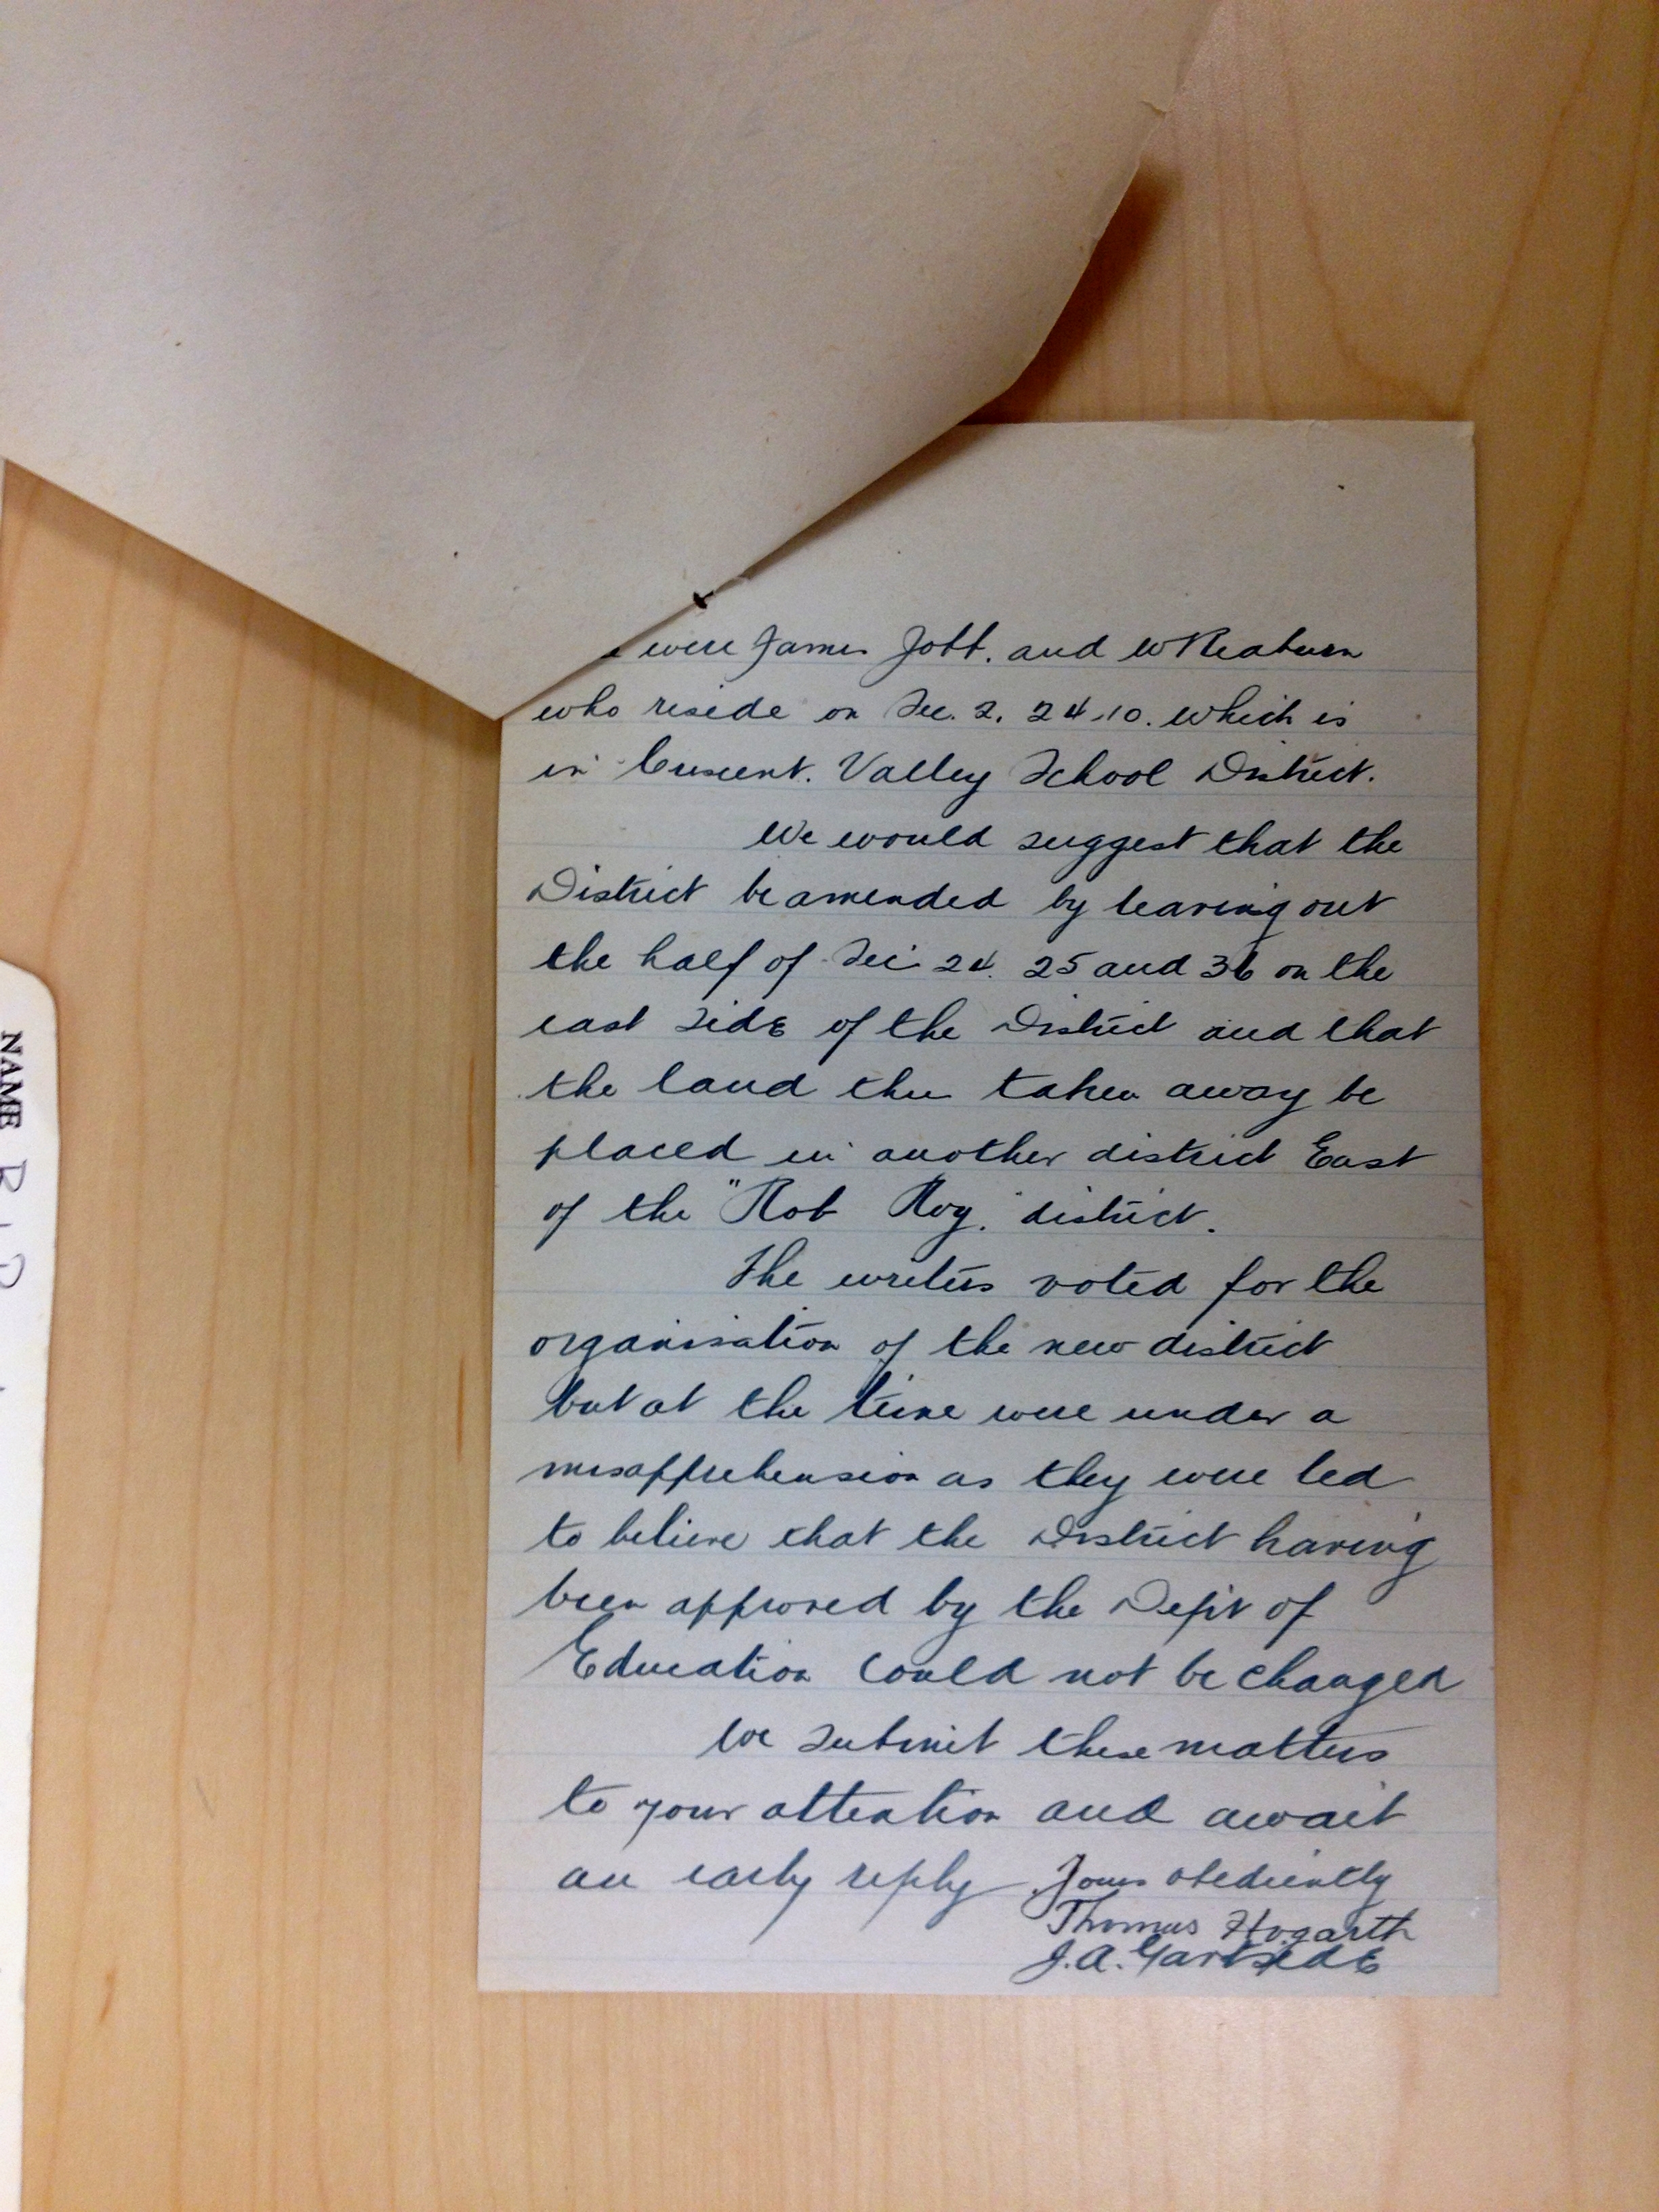 were James Jobb. and W Reaburn
who reside on Sec. 2. 24.10. which is
in Crescent. Valley School District.
We would suggest that the
District be amended by leaving out
the half of Sec 24. 25 and 36 on the
east side of the District and that
the land thus taken away be
placed in another district East
of the "Rob Roy." district.
The writers voted for the
organisation of the new district
but at the time were under a
misapprehension as they were led
to believe that the District having
been approved by the Dept of
Education could not be changed
We submit these matters
to your attention and await
an early reply Yours obediently
Thomas Hogarth
J.A. Gartside
NAME